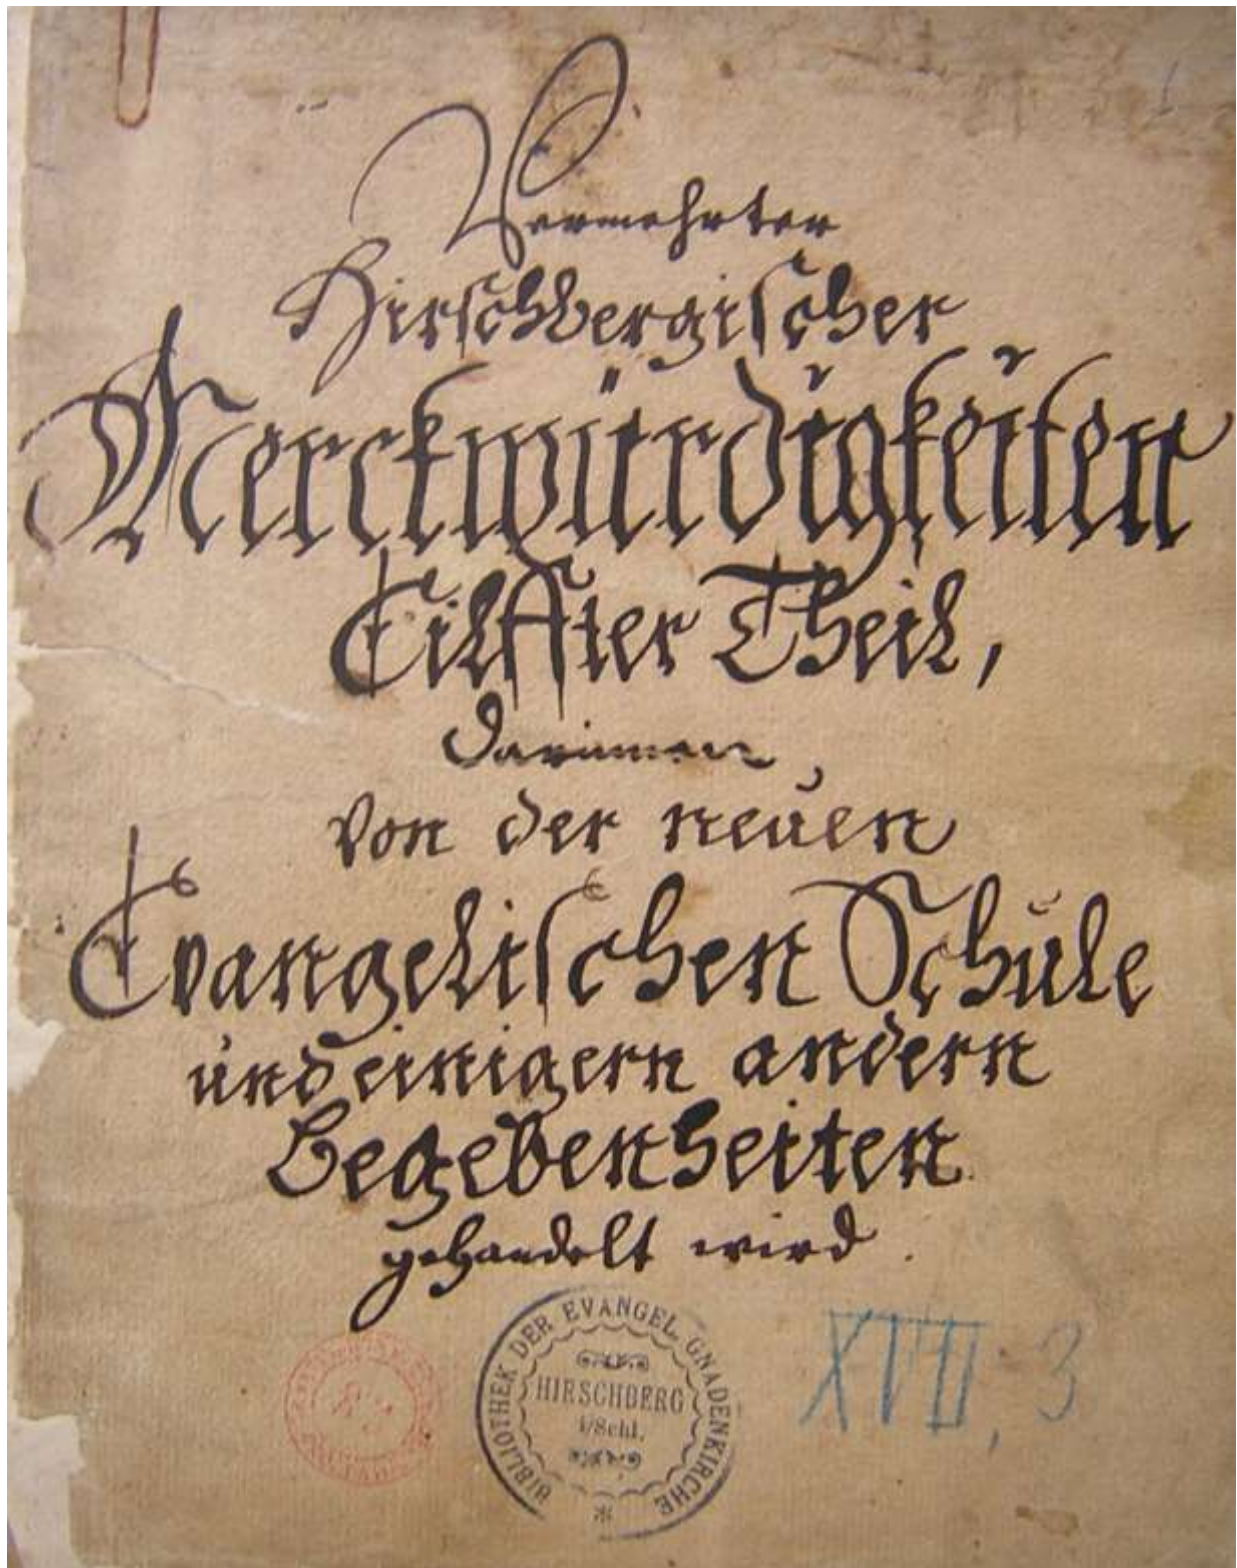 Vermehrter
Hirschbergischer
Merckwürdigkeiten
Eilffter Theil,
darinnen,
von der neuen
Evangelischen Schule
und einigen andern
Begebenheiten
gehandelt wird.
BIBLIOTHEK DER EVANGEL. GNADENKIRCHE
HIRSCHBERG
i/Schl.
XVII, 3